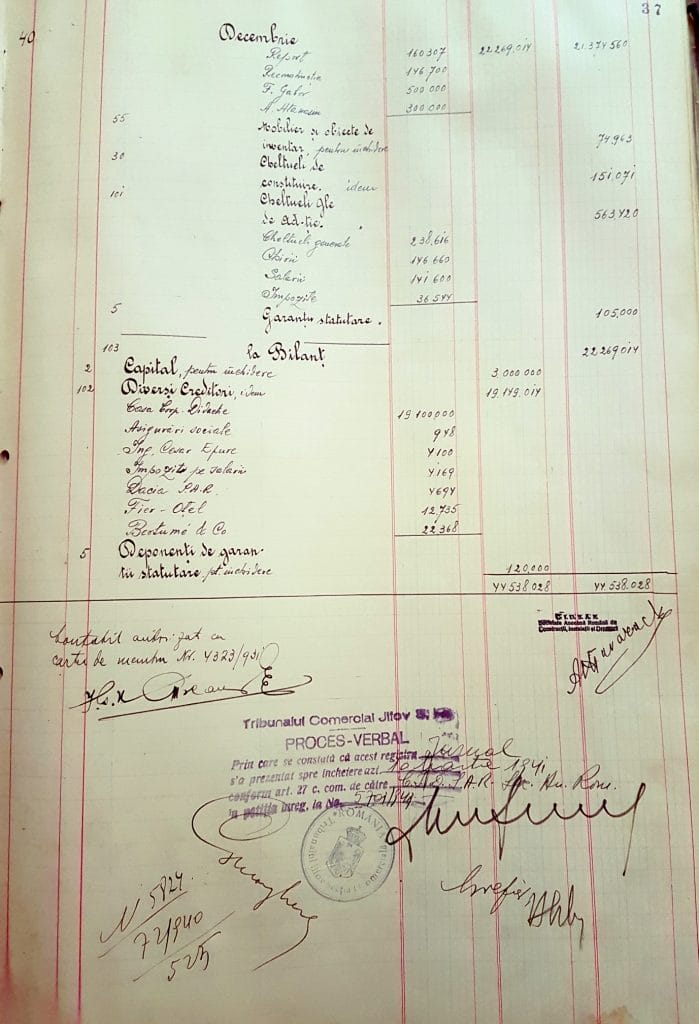 37
40 Decembrie
Report 160307 22269.014 21.374560
Reconstructia 146.700
F. Gabor 500 000
A. Atanasiu 300.000
55 Mobilier și obiecte de
inventar, pentru închidere 74.963
30 Cheltueli de
constituire, idem 151.071
101 Cheltueli gle
de ad-ție. " 563.420
Cheltueli generale 238.616
Chirii 146 660
Salarii 141 600
Impozite 36.544
5 Garanții statutare. 105.000
103 la Bilanț 22269014
2 Capital, pentru închidere 3.000.000
102 Diverși Creditori, idem 19.149.014
Casa Corp. Didactic 19100000
Asigurări sociale 948
Ing. Cesar Epure 4100
Impozite pe salarii 4169
Dacia P.A.R. 4694
Fier - Oțel 12.735
& Co 22.368
5 Deponenți de garan-
ții statutare pt. închidere 120.000
44.538.028 44.538.028
Contabil autorizat cu
cartea de membru Nr. 4323/931
Societate Anonimă Română de
Construcții, Instalații și
Tribunalul Comercial Jlfov S.
PROCES-VERBAL
Prin care se constată că acest registru Jurnal
s'a prezentat spre încheiere azi, 10 Martie 1941
conform art. 27 c. com. de către S.A.R. Soc. An. Rom.
în petiția înreg. la No. 5701/941
ROMANIA
Grefier,
N 5824
72/940
525